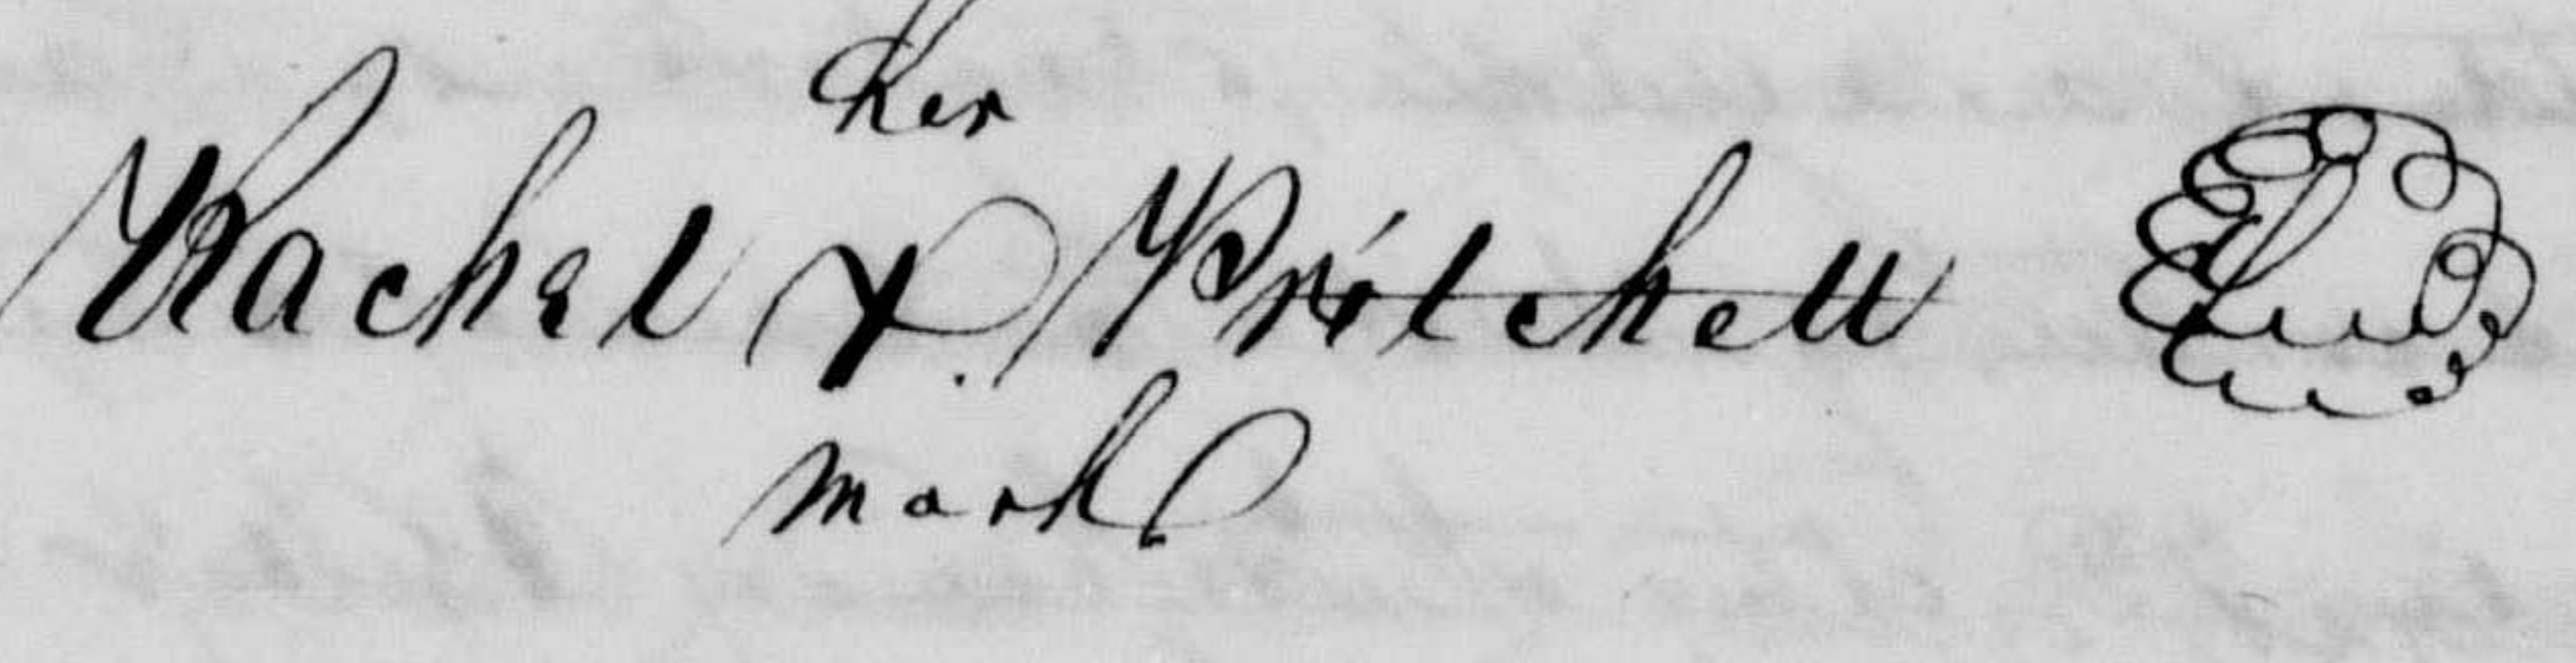 her
Rachel X Pritchett Seal
mark